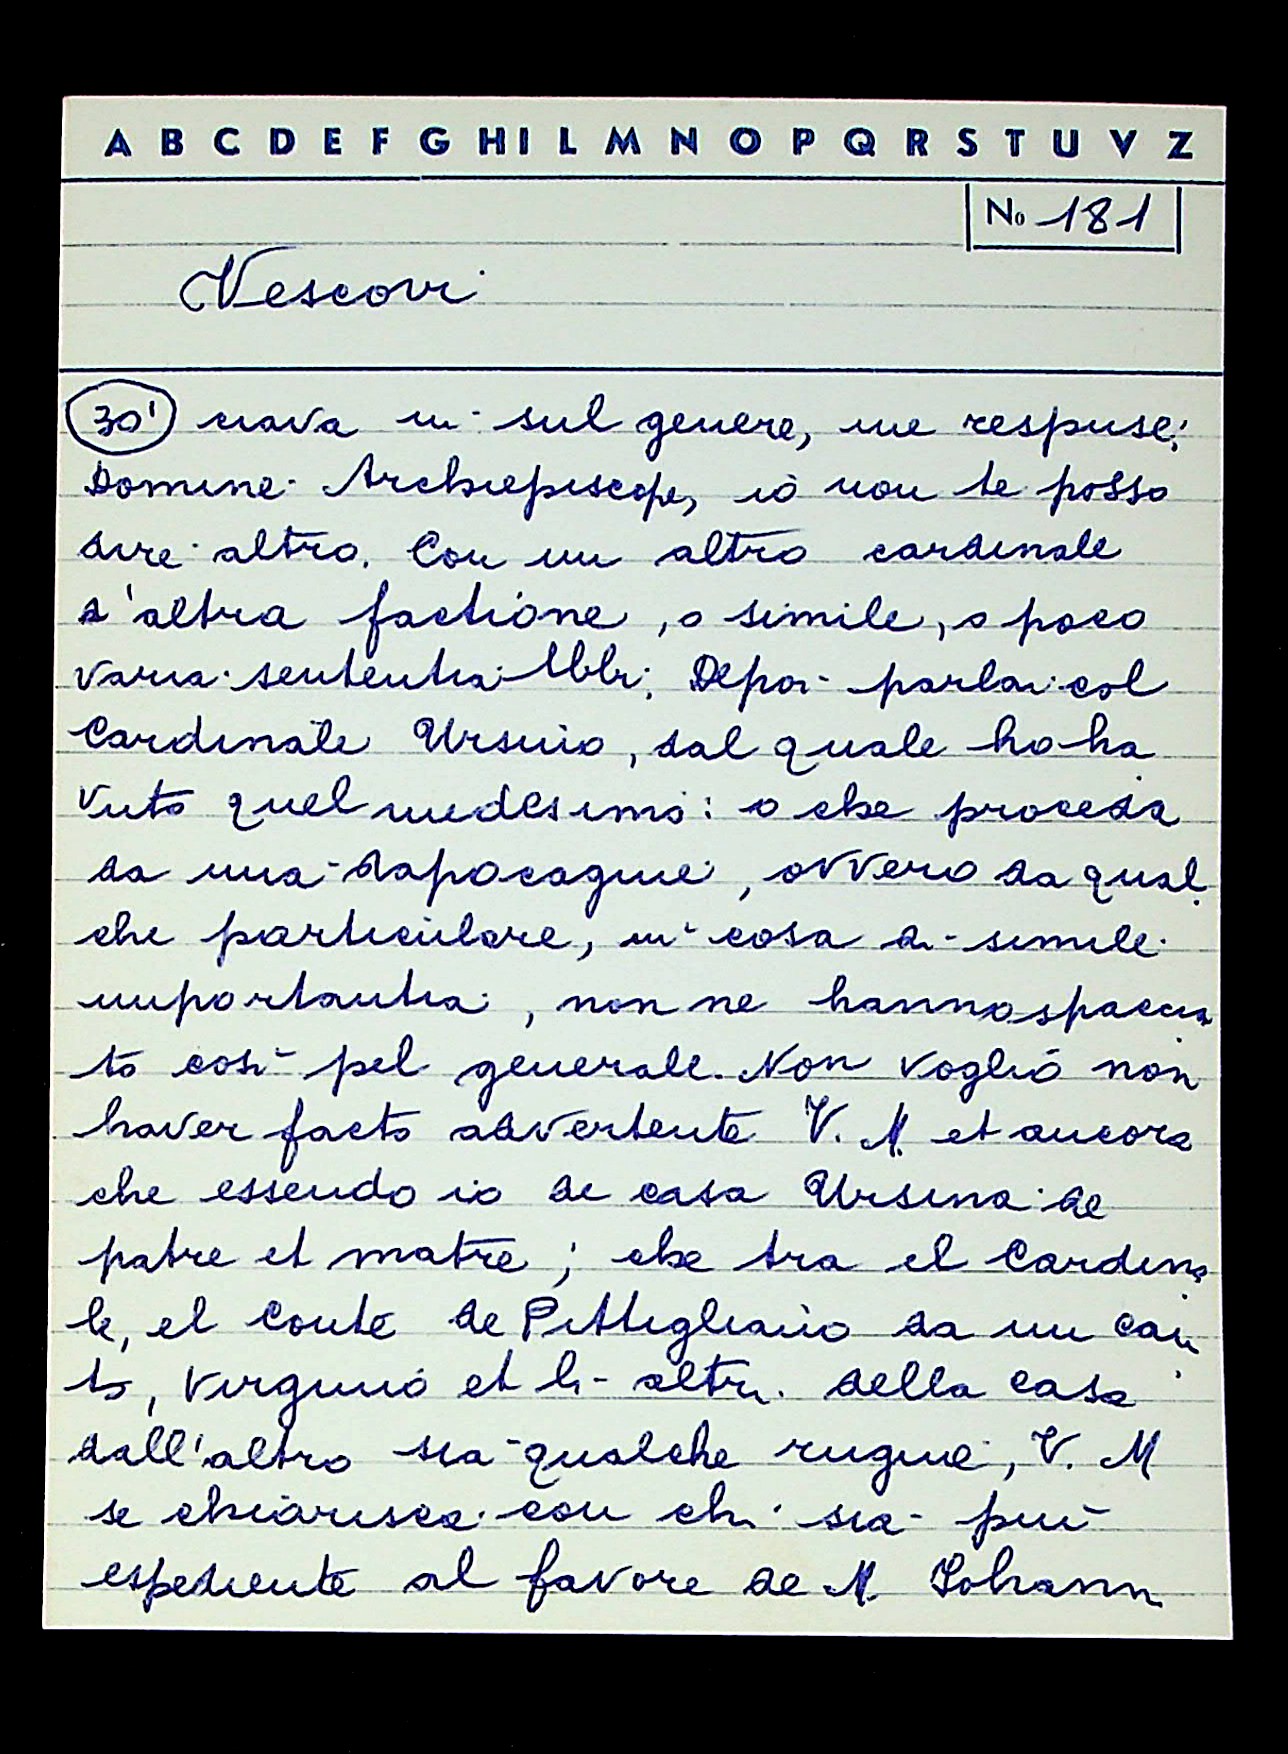 A B C D E F G H I L M N O P Q R S T U V Z
No 181
Vescovi
30' ciava in sul genere, me respuse:
Domine Archiepiscope, io non te posso
dire altro. Con un altro cardinale
d'altra factione, o simile, o poco
varia sententia hebbi. Depoi parlai col
Cardinale Ursino, dal quale ho ha
vuto quel medesimo: o che proceda
da una dapocagine, ovvero da qual
che particulare, in cosa di simile
importantia, non ne hanno spaccia
to così pel generale. Non voglio non
haver facto advertente V. M. et ancora
che essendo io de casa Ursina de
patre et matre; che tra el Cardina
le, el Conte de Pittigliano da un can
to, Virginio et li altri della casa
dall'altro sia qualche rugine, V. M
se chiarisca con chi sia più
espediente al favore de M. Johann